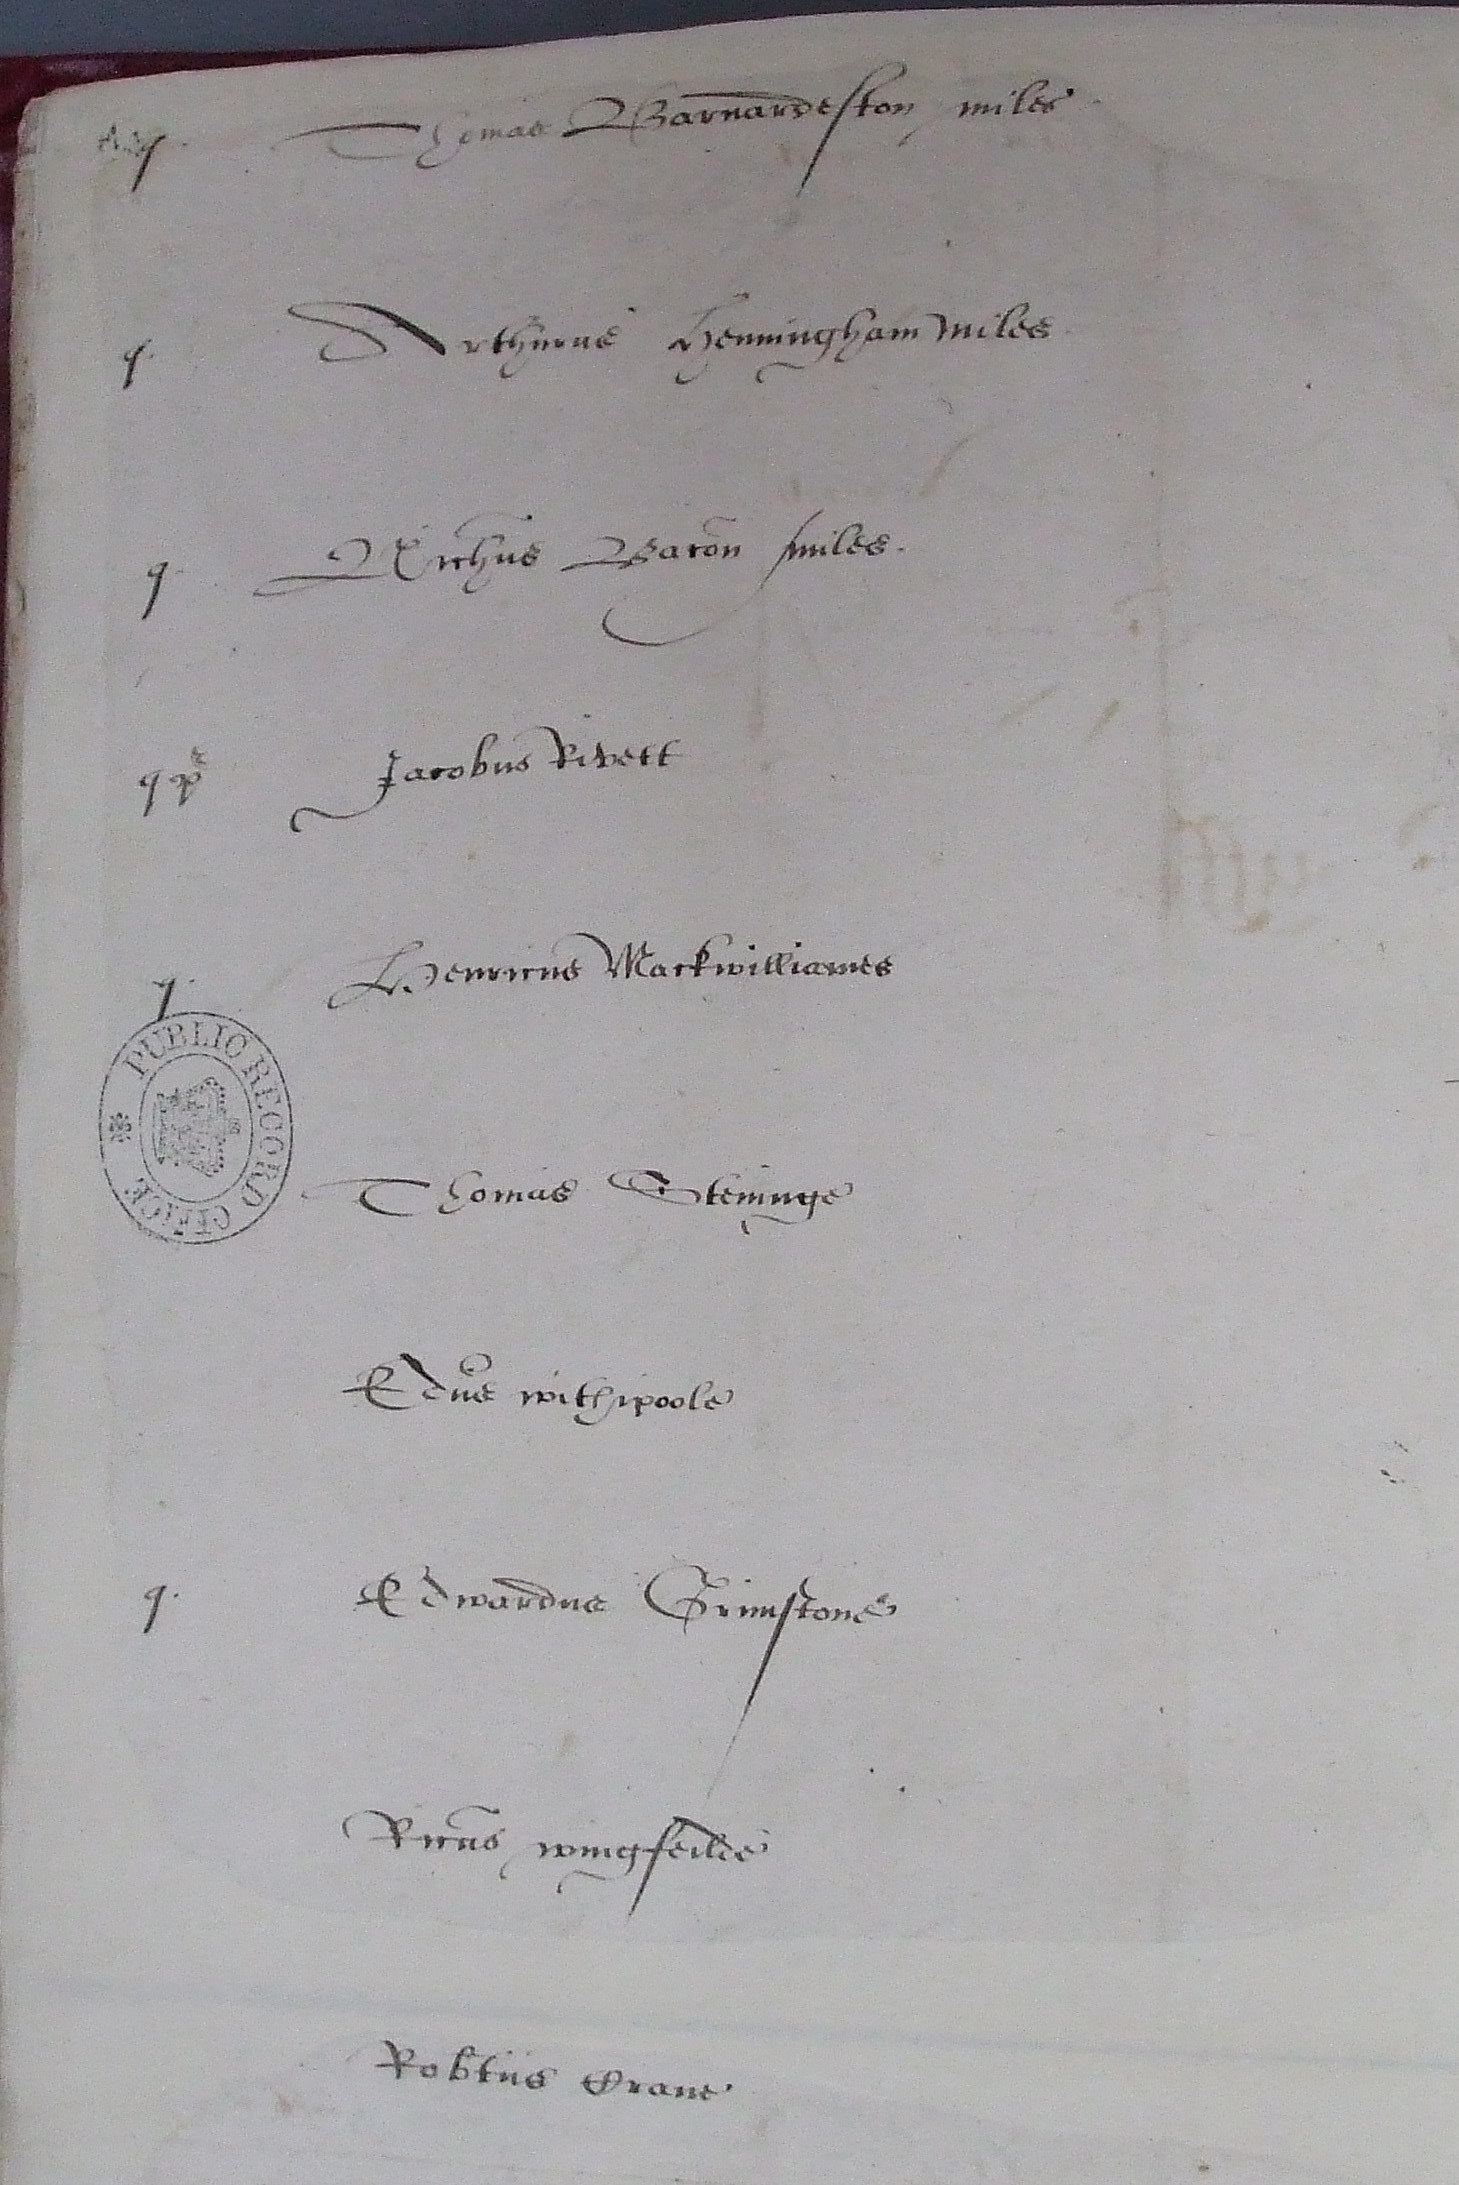 q Thomas Barnardeston miles
q. Arthurus Henningham miles
q Nichus Bacon miles.
q p Jacobus Rivett
q. Henricus Mackwilliames
PUBLIC RECORD OFFICE
Thomas Steninge
Edus withipoole
q. Edwardus Grimstone
Ricus wingfeilde
Robtus Crane